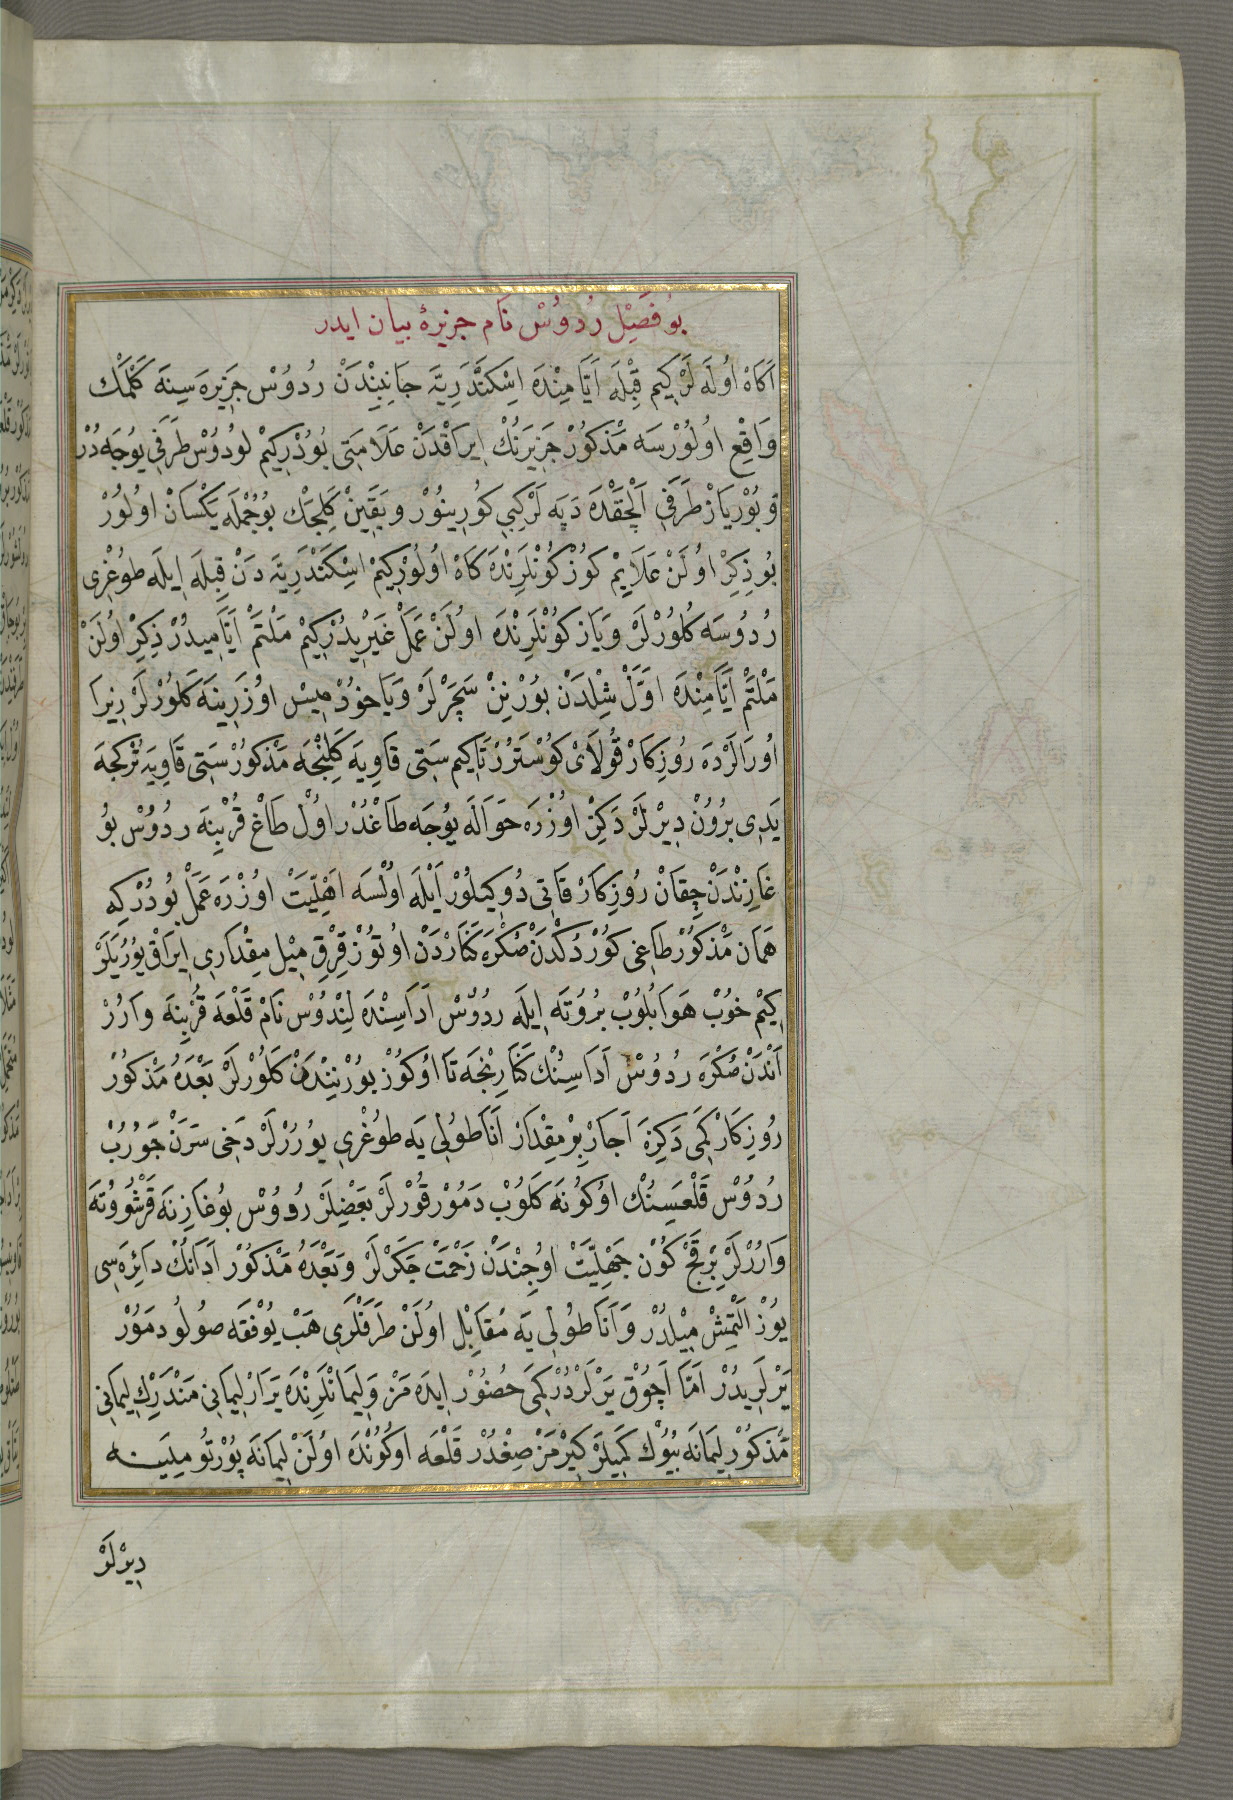 بو فصیل ردوس نام جزیرۀ بیان ایدر
آكاه اوله لركیم قبله ایامنده اسكندریه جانبندن ردوس جزیره سنه كلمك
واقع اولورسه مذكور جزیرنك ایراقدن علامتی بودركیم لودوس طرفی یوجه در
و بوریاز طرفی الچقده دپه لر كبی كورینور و یقین كلیجك بو جمله یكسان اولور
بو ذكر اولن علایم كوز كونلرنده كاه اولوركیم اسكندریه دن قبله ایله طوغری
ردوسه كلورلر و یاز كونلرنده اولن عمل غیریدركیم ملتم ایامیدر ذكر اولن
ملتم ایامنده اول شلدن بورنین سچرلر و یا خود میس اوزرینه كلورلر زیرا
اورالرده روزكار قولای كوستررتاكیم ستی قاویه كلنجه مذكور ستی قاویه تركجه
یدی برون دیرلر دكز اوزره حواله یوجه طاغدر اول طاغ قربنه ردوس بو
غازندن چقان روزكار قاتی دوكیلور ایله اولسه اهلیت اوزره عمل بودركه
همان مذكور طاغی كوردكدن صكره كناردن اوتوز قرق میل مقداری ایراق یوریلر
كیم خوب هوا بلوب بروته ایله ردوس اداسنده لندوس نام قلعه قربنه وارر
اندن صكره ردوس اداسنك كنارنجه تا اوكوز بورنیندن كلورلر بعده مذكور
روزكار كمی دكزه اجار بر مقدار اناطولی یه طوغری یوررلر دخی سرن جوروب
ردوس قلعسنك اوكونه كلوب دمور قورلر بعضیلر ردوس بوغازنه قرشو وته
واررلر برقچ كون جهلیت اوجندن زحمت چكرلر و بعده مذكور ادانك دائره سی
یوز التمش میلدر و اناطولی یه مقابل اولن طرفلری هب یوفقه صولو دمور
یرلریدر اما اچوق یرلردر كمی حضور ایده مز و لیمانلرنده یرار لیمانی مندرك لیمانی
مذكور لیمانه بیوك كمیلر كیرمز صغدر قلعه اوكونده اولن لیمانه پورتو میلینه
دیرلر